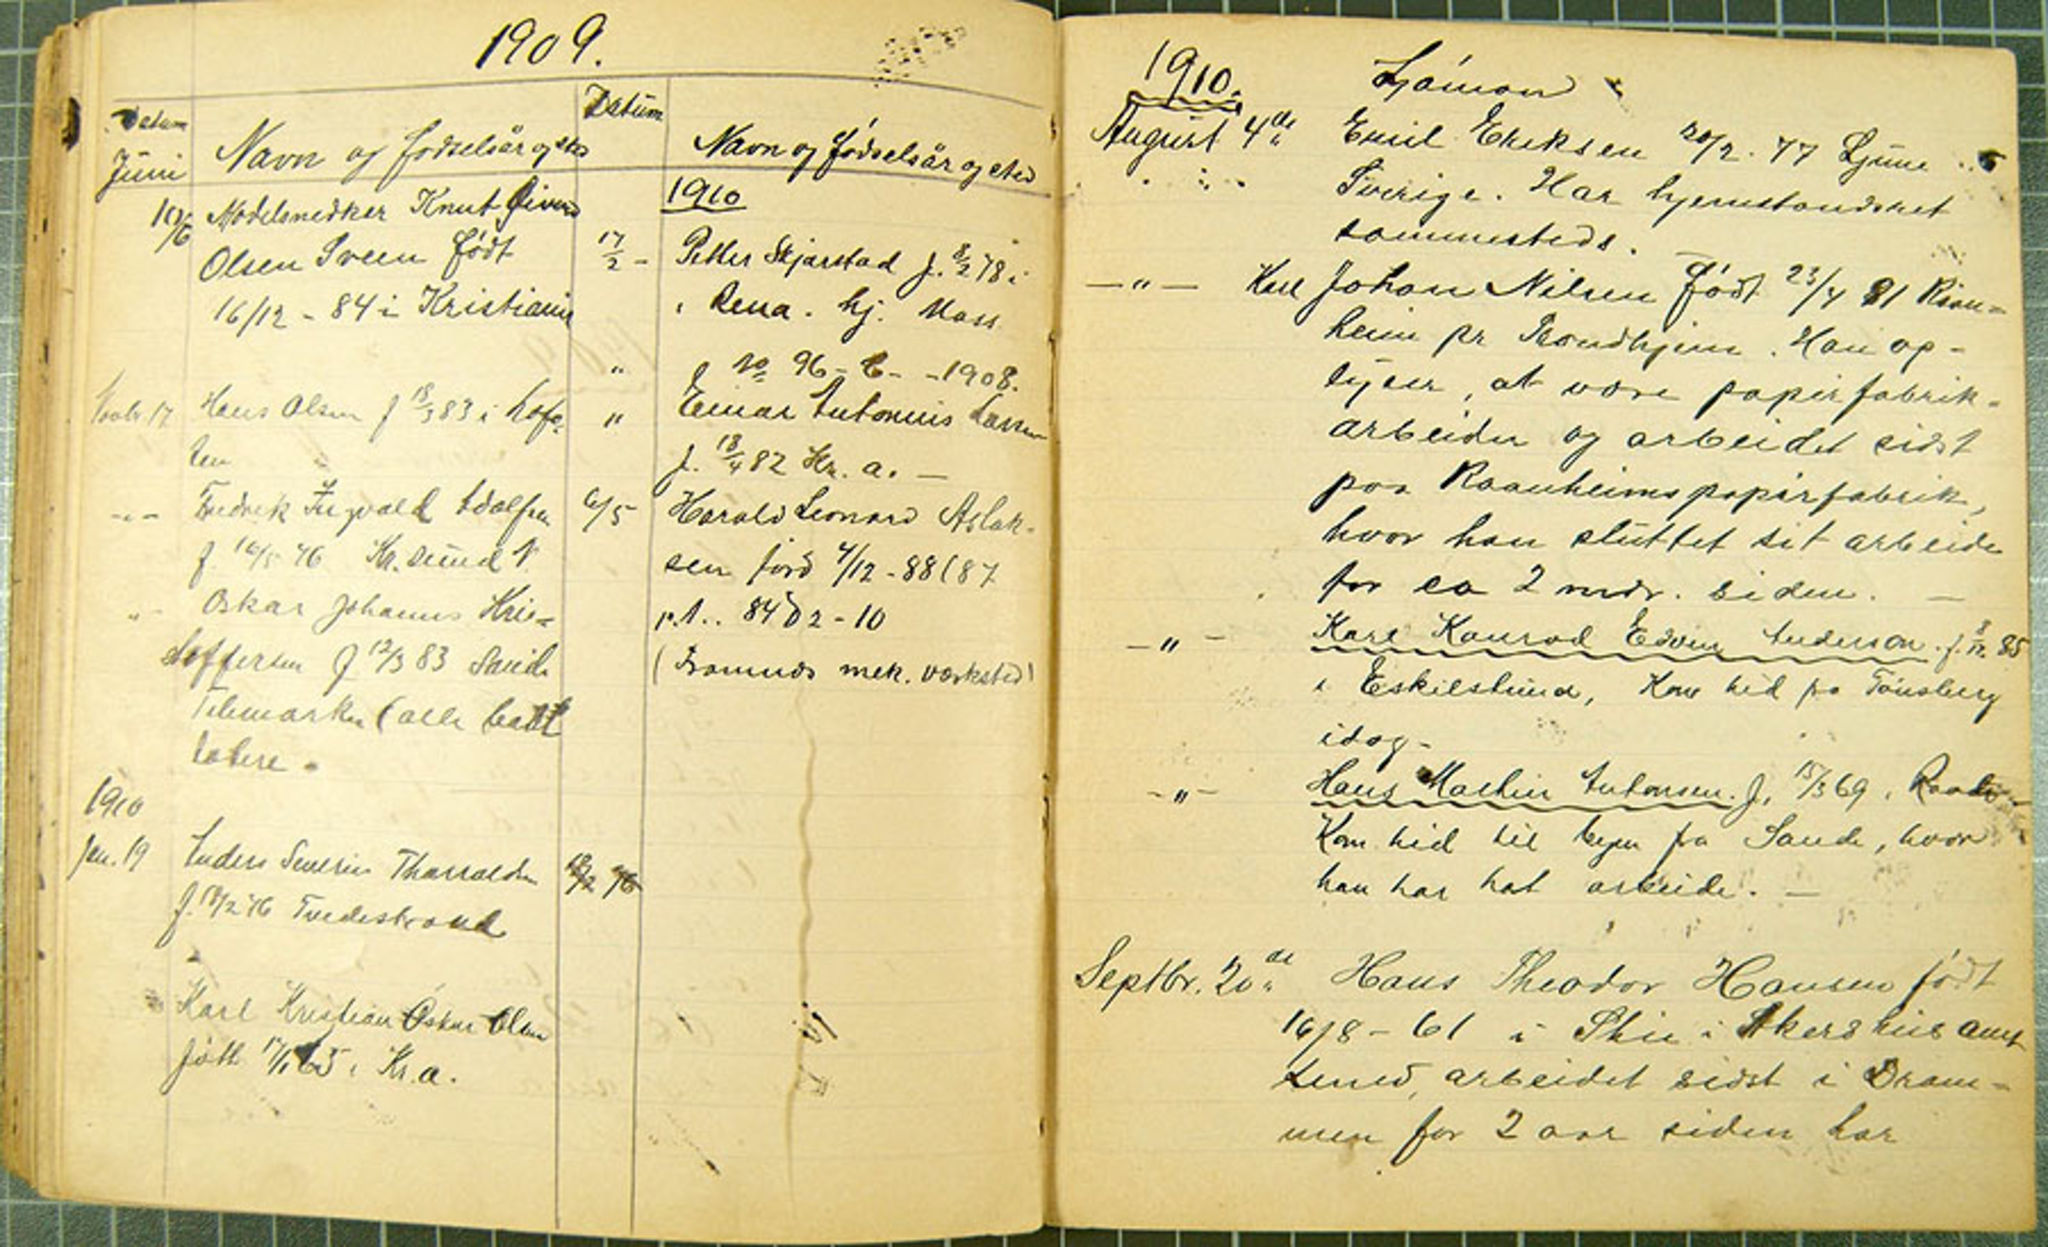 1909.
Datum
Juni
Navn og fødselsår og sted
10/6 Modelsnedker Knut
Olsen Sveen født
16/12 - 84 i Kristiania
17 Hans Olsen f 18/3 83 i Lofo-
ten
-"- Fredrik Ingvald Adolfsen
f. 16/5 76 Kr.sund N
-"- Oskar Johannes Kris-
toffersen f 12/3 83 Sande
Telemarken (alle
1910
Jan. 19 Anders Severin Thorvaldsen
f. 18/2 76 Tvedestrand
Karl Kristian Oskar Olsen
født 17/1 65 i Kr.a.
Datum
Navn og fødselsår og sted
1910
17/2 - Petter Skjærstad f. 8/2 78 i
Rena. hj. Moss
" No 96 - 1908.
" Einar Antonius Larsen
f. 18/4 82 Kr. a. -
6/5 Harald Leonard Aslak-
sen født 4/12 - 88 (87
(Framnæs mek. værksted)
18/2 76
1910.
August 4de Emil Eriksen 20/2 - 77
Sverige. Har hjemstandsret
sammesteds.
-"- Karl Johan Nilsen født 23/4 81 Ran-
heim pr Trondhjem. Han op-
lyser, at være papirfabrik-
arbeider og arbeidet sidst
paa Raanheims papirfabrik,
hvor han sluttet sit arbeide
for ca 2 mdr. siden. -
-"- Karl Konrad Edvin Anderson. f. 8/12. 85
i Eskilstuna, Kom hid fra Tønsberg
idag.
-"- Hans Martin Antonsen. f. 15/3 69 i Raade
Kom hid til byen fra Sande, hvor
han har hat arbeide. -
Septbr. 20de Hans Theodor Hansen født
16/8 - 61 i Skie i Akershus amt
arbeidet sidst i Dram-
men for 2 aar siden har